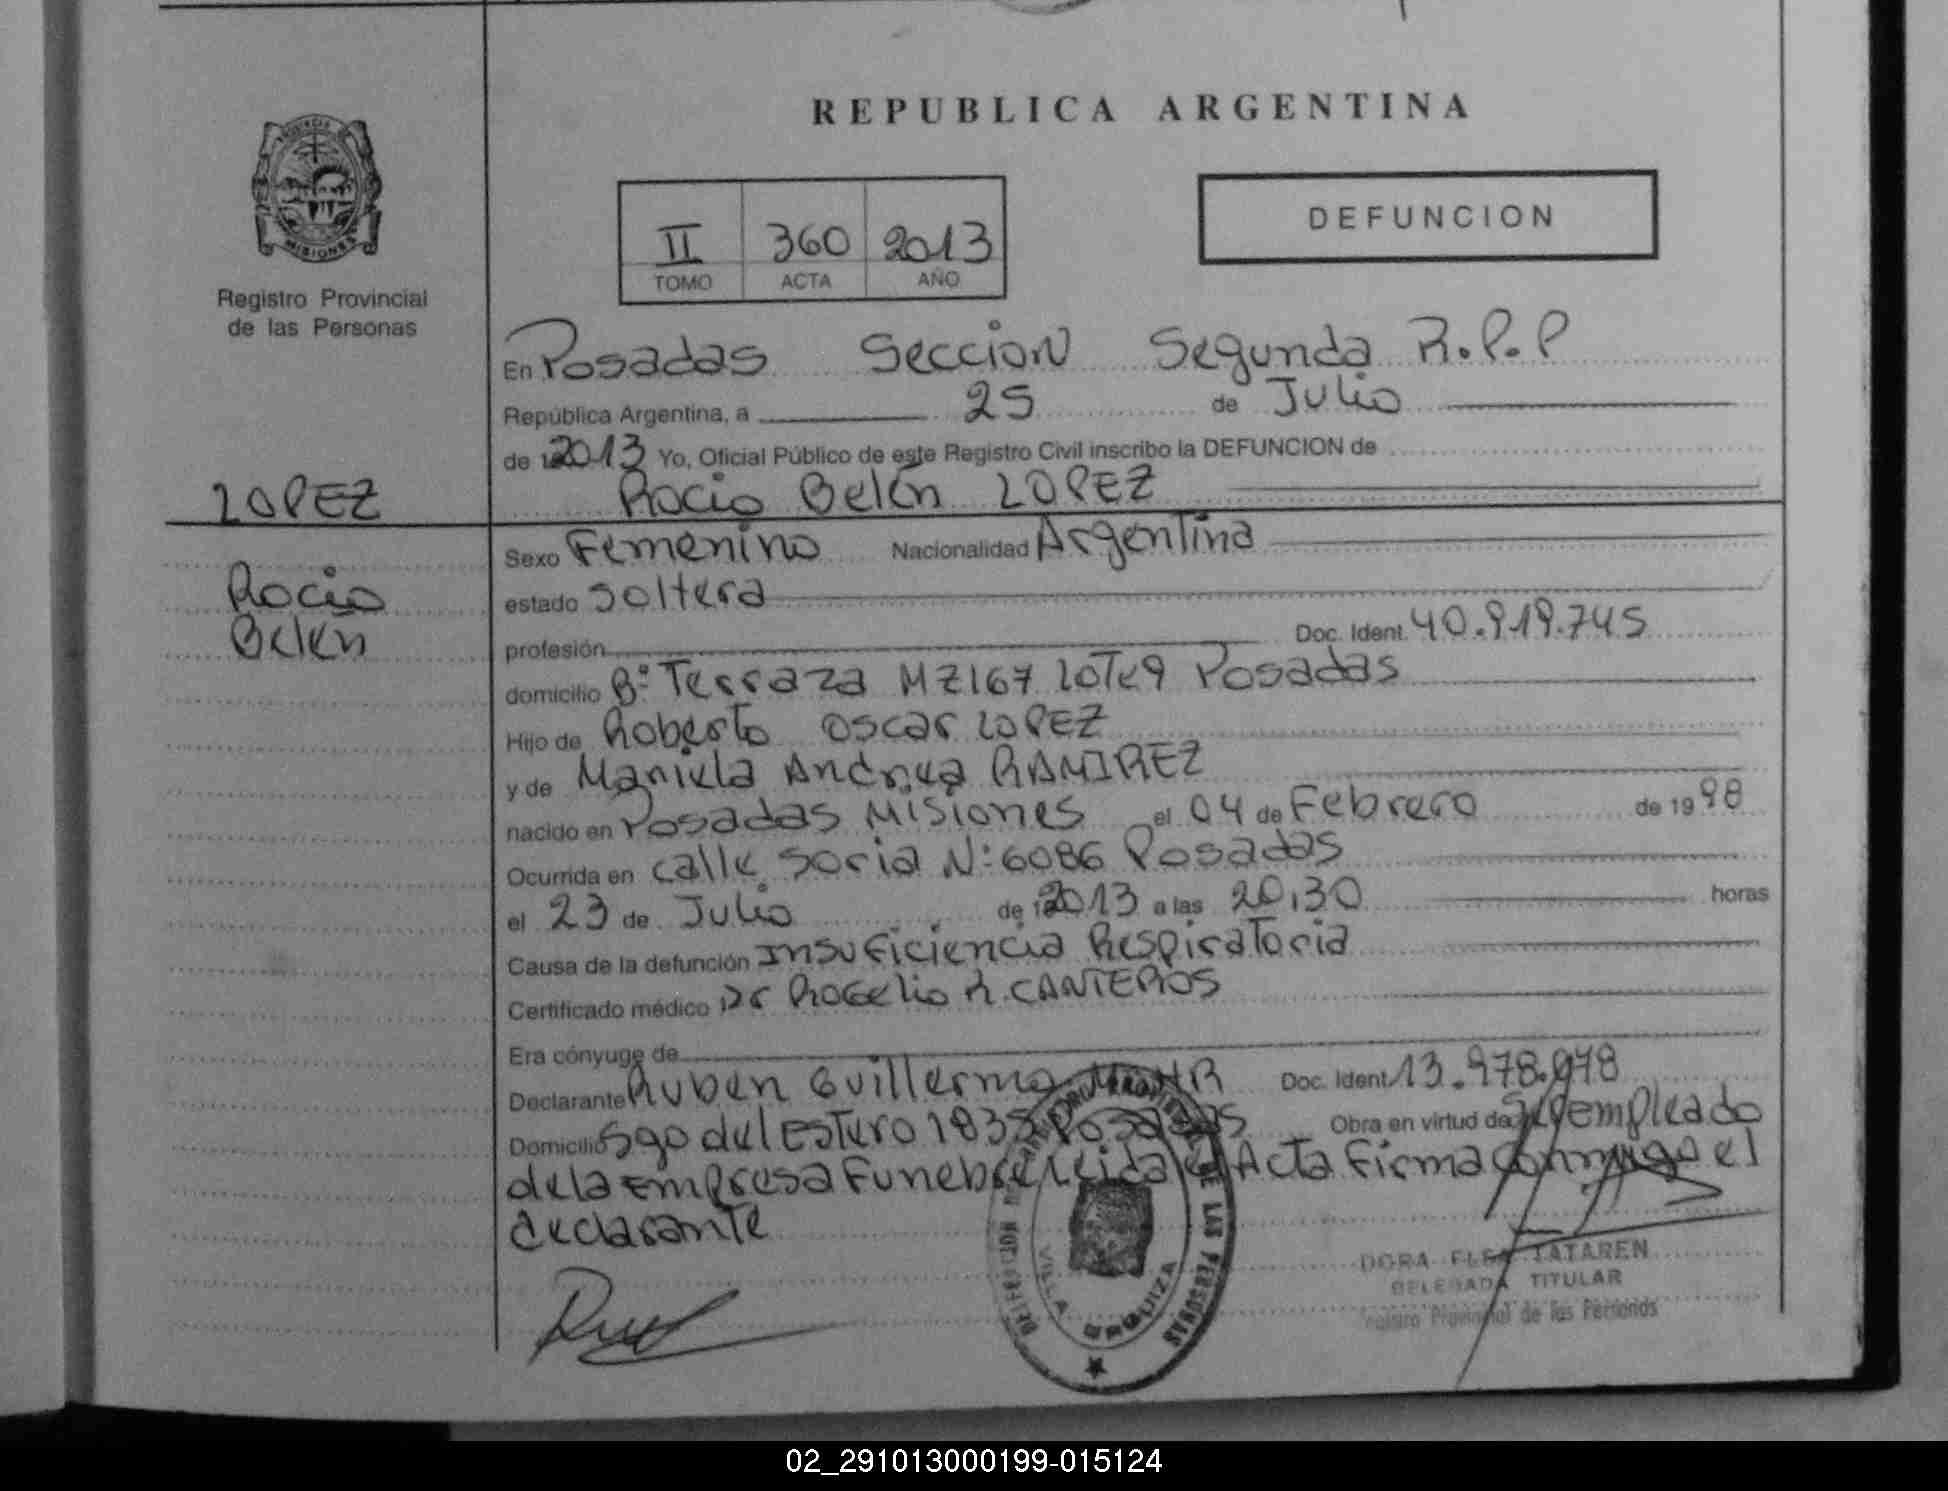 REPUBLICA ARGENTINA
PROVINCIA DE
MISIONES
Registro Provincial
de las Personas
II 360 2013
TOMO ACTA AÑO
DEFUNCION
En Posadas Seccion Segunda R.P.P
República Argentina, a 25 de Julio
de 2013 Yo, Oficial Público de este Registro Civil inscribo la DEFUNCION de
Rocio Belén LOPEZ
LOPEZ
Rocio
Belén
Sexo Femenino Nacionalidad Argentina
estado Soltera
profesión Doc. Ident. 40.919.745
domicilio Bº Terraza MZ167 Lote9 Posadas
Hijo de Roberto Oscar LOPEZ
y de Mariela Andrea RAMIREZ
nacido en Posadas Misiones el 04 de Febrero de 1998
Ocurrida en calle Soria Nº 6086 Posadas
el 23 de Julio de 2013 a las 20,30 horas
Causa de la defunción Insuficiencia Respiratoria
Certificado médico Dr Rogelio R. CANTEROS
Era cónyuge de
Declarante Ruben Guillermo Doc. Ident. 13.978.978
Domicilio Sgo del Estero 1835 Posadas Obra en virtud de ser empleado
de la Empresa Funebre Leida el Acta Firma conmigo el
declarante
DE LAS PERSONAS
VILLA URQUIZA
DORA ELSA TATAREN
DELEGADA TITULAR
Registro Provincial de las Personas
02_291013000199-015124